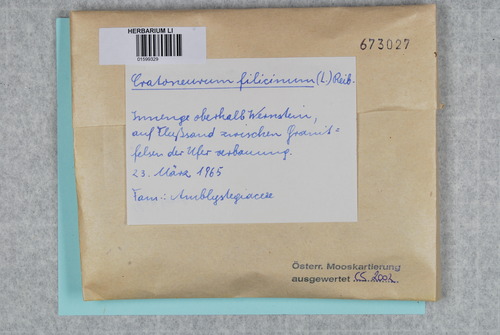 HERBARIUM LI
01599329
673027
Cratoneurum filicinum (L.) Roth.
Innenge oberhalb Wernstein,
auf Flußsand zwischen Granit=
felsen der Uferverbauung.
23. März 1965
Fam.: Amblystegiaceae
Österr. Mooskartierung
ausgewertet CS 2002